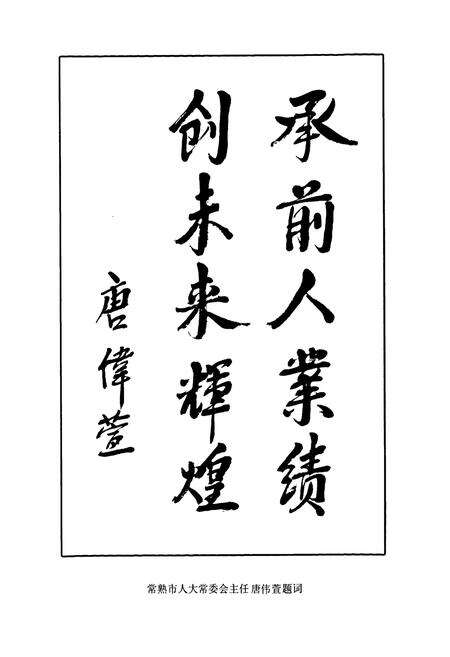 承前人業绩
创未来輝煌
唐偉萱
常熟市人大常委会主任 唐伟萱题词